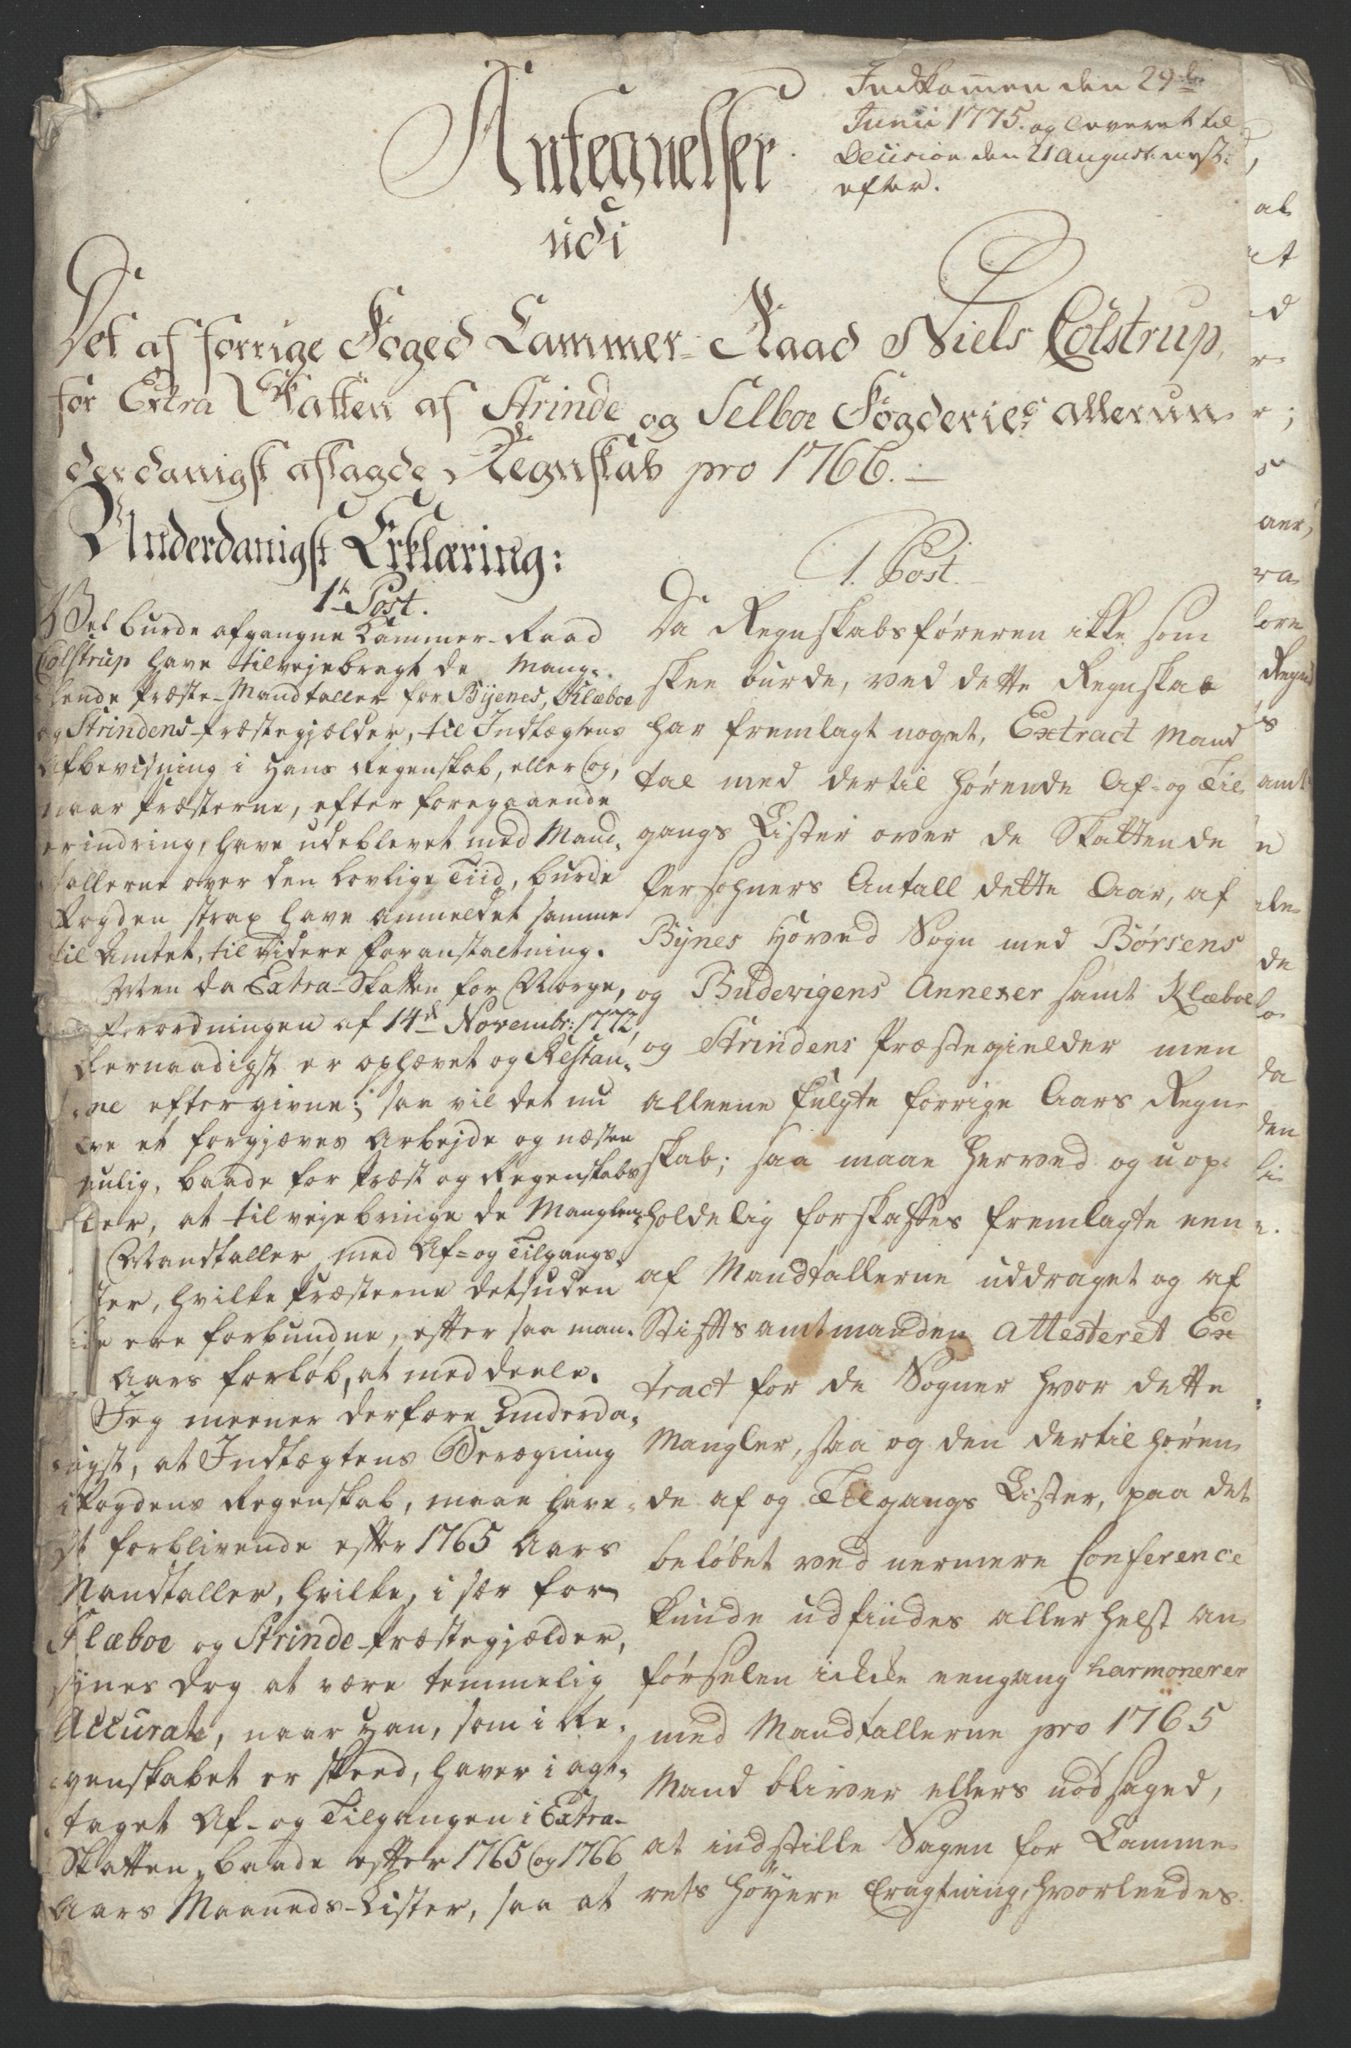 Indkommen den 29de
Junii 1775. og leveret til
Decision den 21 August næst
efter.
Antegnelser
udi
Det af forrige Foged Cammer-Raad Niels Colstrup,
for Extra Skatten af Strinde og Selboe Fogderier allerun-
derdanigst aflagde Regnskab pro 1766.
Underdanigst Erklæring:
1te Post.
Vel burde afgangne Cammer-Raad
Colstrup have tilvejebragt de Mang-
lende Præste-Mandtaller for Byenes, Klæboe
og Strindens Præstegjælder, til Indtægtens
Afbeviisning i hans Regenskab, eller og,
naar Præsterne, efter foregaaende
erindring, have udeblevet med Mand-
tallerne over den lovlige Tiid, burde
Fogden strax have anmeldet samme
til Amtet, til videre foranstaltning.
Men da Extra-Skatten for Norge,
ved Forordningen af 14de Novembr: 1772,
allernaadigst er ophævet og Restan-
cerne eftergivne; saa vil det nu
blive et forgjæves Arbejde og næsten
umulig, baade for Præst og Regenskabs-
fører, at tilvejebringe de Manglen-
de Mandtaller med Af- og Tilgangs-
Lister, hvilke Præsterne desuden
ikke ere forbundne, efter saa man-
ge Aars forløb, at meddeele.
Jeg meener derfore underda-
nigst, at Indtægtens Beregning
i Fogdens Regenskab, maae have
sit forblivende efter 1765 Aars
Mandtaller, hvilke, i sær for
Klæboe og Strinde Præstegjælder,
synes dog at være temmelig
Accurate, naar han, som i Re-
genskabet er skeed, haver i agt-
taget Af- og Tilgangen i Extra-
Skatten, baade efter 1765 og 1766
Aars Maaneds-Lister, saa at
1. Post.
Da Regnskabsføreren ikke som
skee burde, ved dette Regnskab
har fremlagt noget, Extract Mand
tal med dertil hørende Af- og Til
gangs Lister over de Skattende
Persohners Antall dette Aar, af
Bynes Hoved Sogn med Børsens
og Budevigens Annexer samt Klæboe
og Strindens Præstegielder men
alleene fulgte forrige Aars Regn-
skab; saa maae herved og uop-
holdelig forskaffes fremlagte een
af Mandtallerne uddraget og af
Stiftsamtmanden Attesteret Ex
tract for de Sogner hvor dette
Mangler, saa og den dertil høren
de af og Tilgangs Lister, paa det
beløbet ved nermere Conference
kunde udfindes allerhelst an-
førselen ikke eengang harmonerer
med Mandtallerne pro 1765
Mand bliver ellers nødsaged,
at indstille Sagen for Camme-
rets Høyere Eragtning, hvorleedes